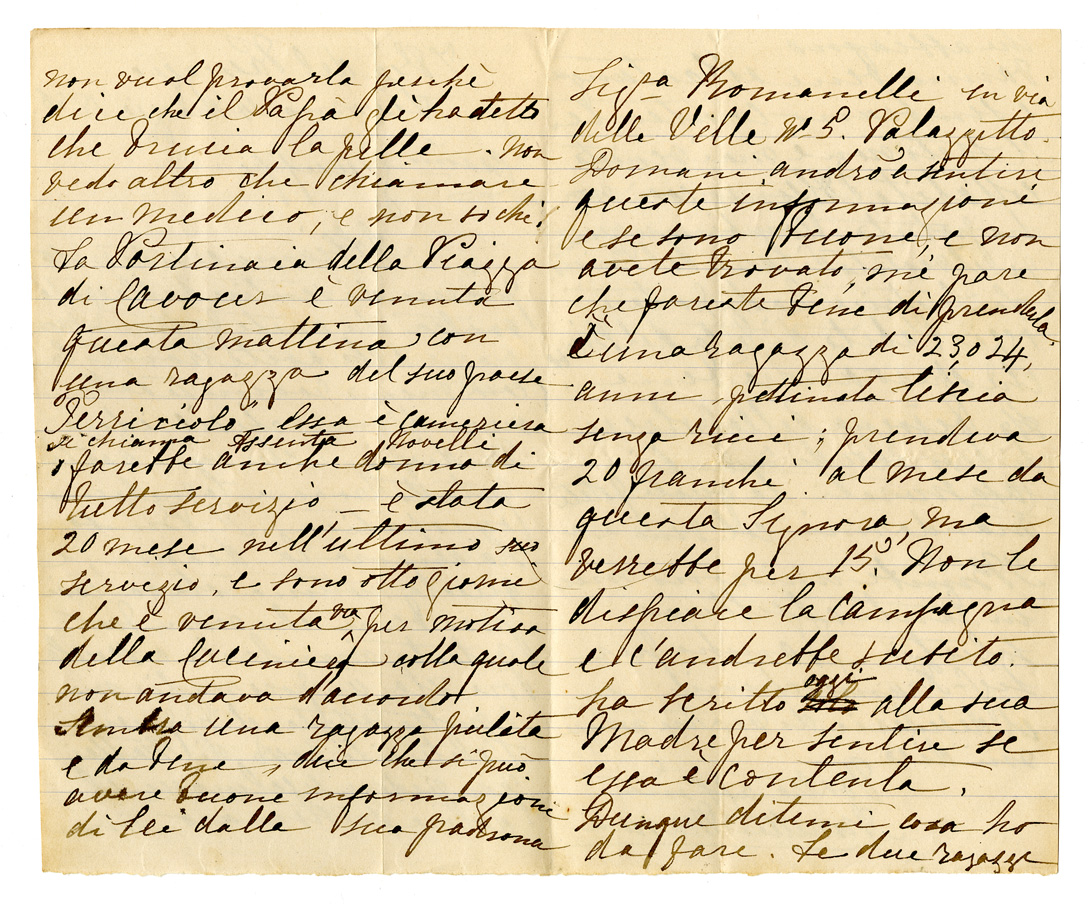 non vuol provarla perchè
dice che il Papà gli ha detto
che brucia la pelle. non
vedo altro che chiamare
un medico, e non so chi!
La Portinaia della Piazza
di Cavour è venuta
questa mattina con
una ragazza del suo paese
Terricciolo. Essa è cameriera
si chiama Assunta Novelli
e farebbe anche donna di
tutto servizio – è stata
20 mese nell'ultimo suo
servizio, e sono otto giorni
che è venuta via per motivo
della Cuciniera colla quale
non andava d'accordo
Sembra una ragazza pulita
e da bene, dice che si può
avere buone informazioni
di lei dalla sua padrona
Sigra Romanelli in via
delle Ville No 5. Palazzetto.
Domani andrò a sentire
queste informazioni
e se sono buone, e non
avete trovato, mi pare
che fareste bene di prenderla.
È una ragazza di 23, o 24,
anni, pettinata liscia
senza ricci; prendeva
20 franchi al mese da
questa Signora, ma
verrebbe per 15. Non le
dispiace la campagna
e c'andrebbe subito.
ha scritto oggi alla sua
Madre per sentire se
essa è contenta.
Dunque ditemi cosa ho
da fare. Le due ragazze